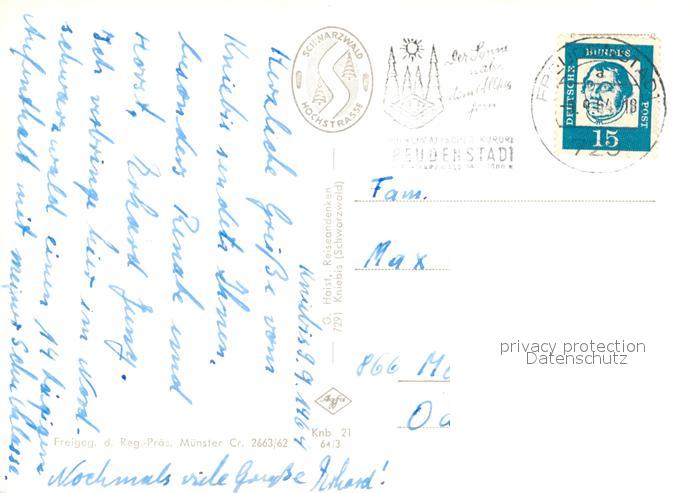 Kniebis 9.9.1964
Herzliche Grüße vom
Kniebis sendet Ihnen,
besonders Renate und
Horst, Erhard Jung.
Ich verbringe hier im Nord-
schwarzwald einen 14 tägigen
Aufenthalt mit meiner Schulklasse.
Nochmals viele Grüße Erhard!
SCHWARZWALD
HOCHSTRASSE
Der Sonne
nahe
dem Alltag
fern
FREUDENSTADT
DEUTSCHE BUNDES POST
15
Fam.
Max
866 Mü
G. Haist, Reiseandenken
7291 Kniebis (Schwarzwald)
Agfa
Knb 21
64/3
Freigeg. d. Reg.-Präs. Münster Cr. 2663/62
privacy protection
Datenschutz